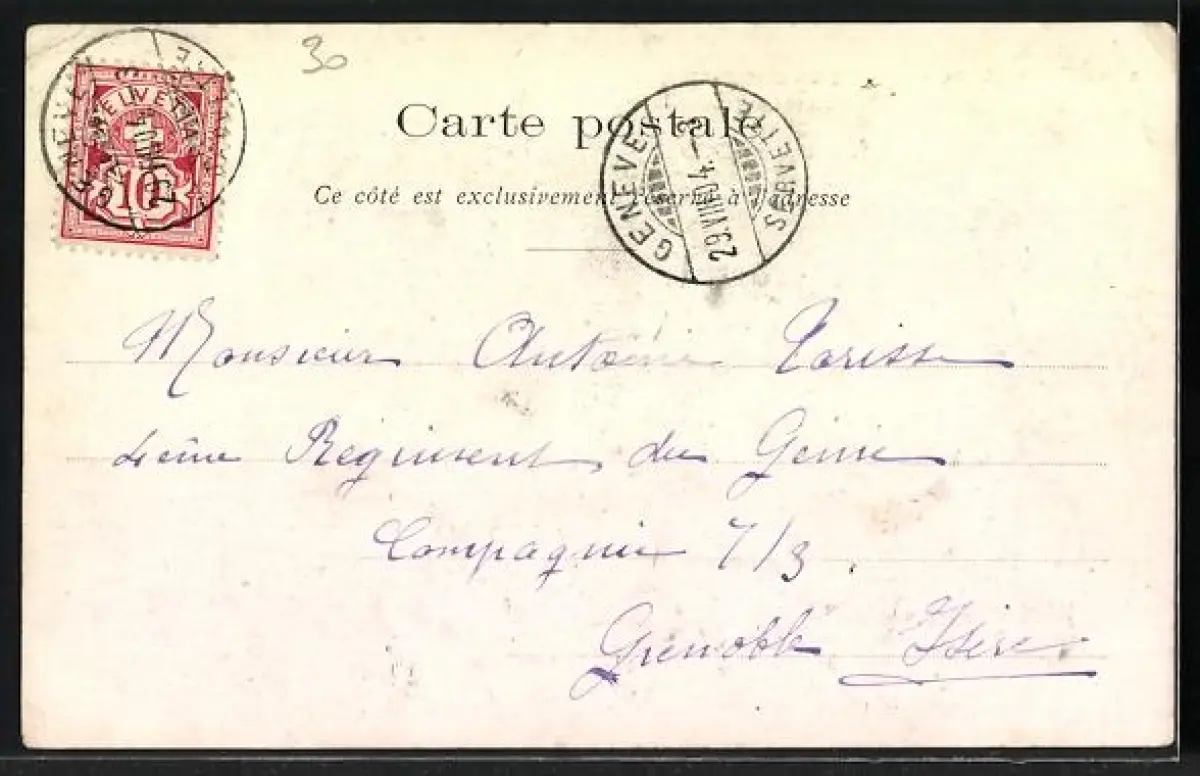 30
HELVETIA
10
Carte postale
Ce côté est exclusivement réservé à l'adresse
GENEVE
29.VIII.04.
SERVETTE
Monsieur Antoine
4eme Regiment du Génie
Compagnie 7/3
Grenoble Isère